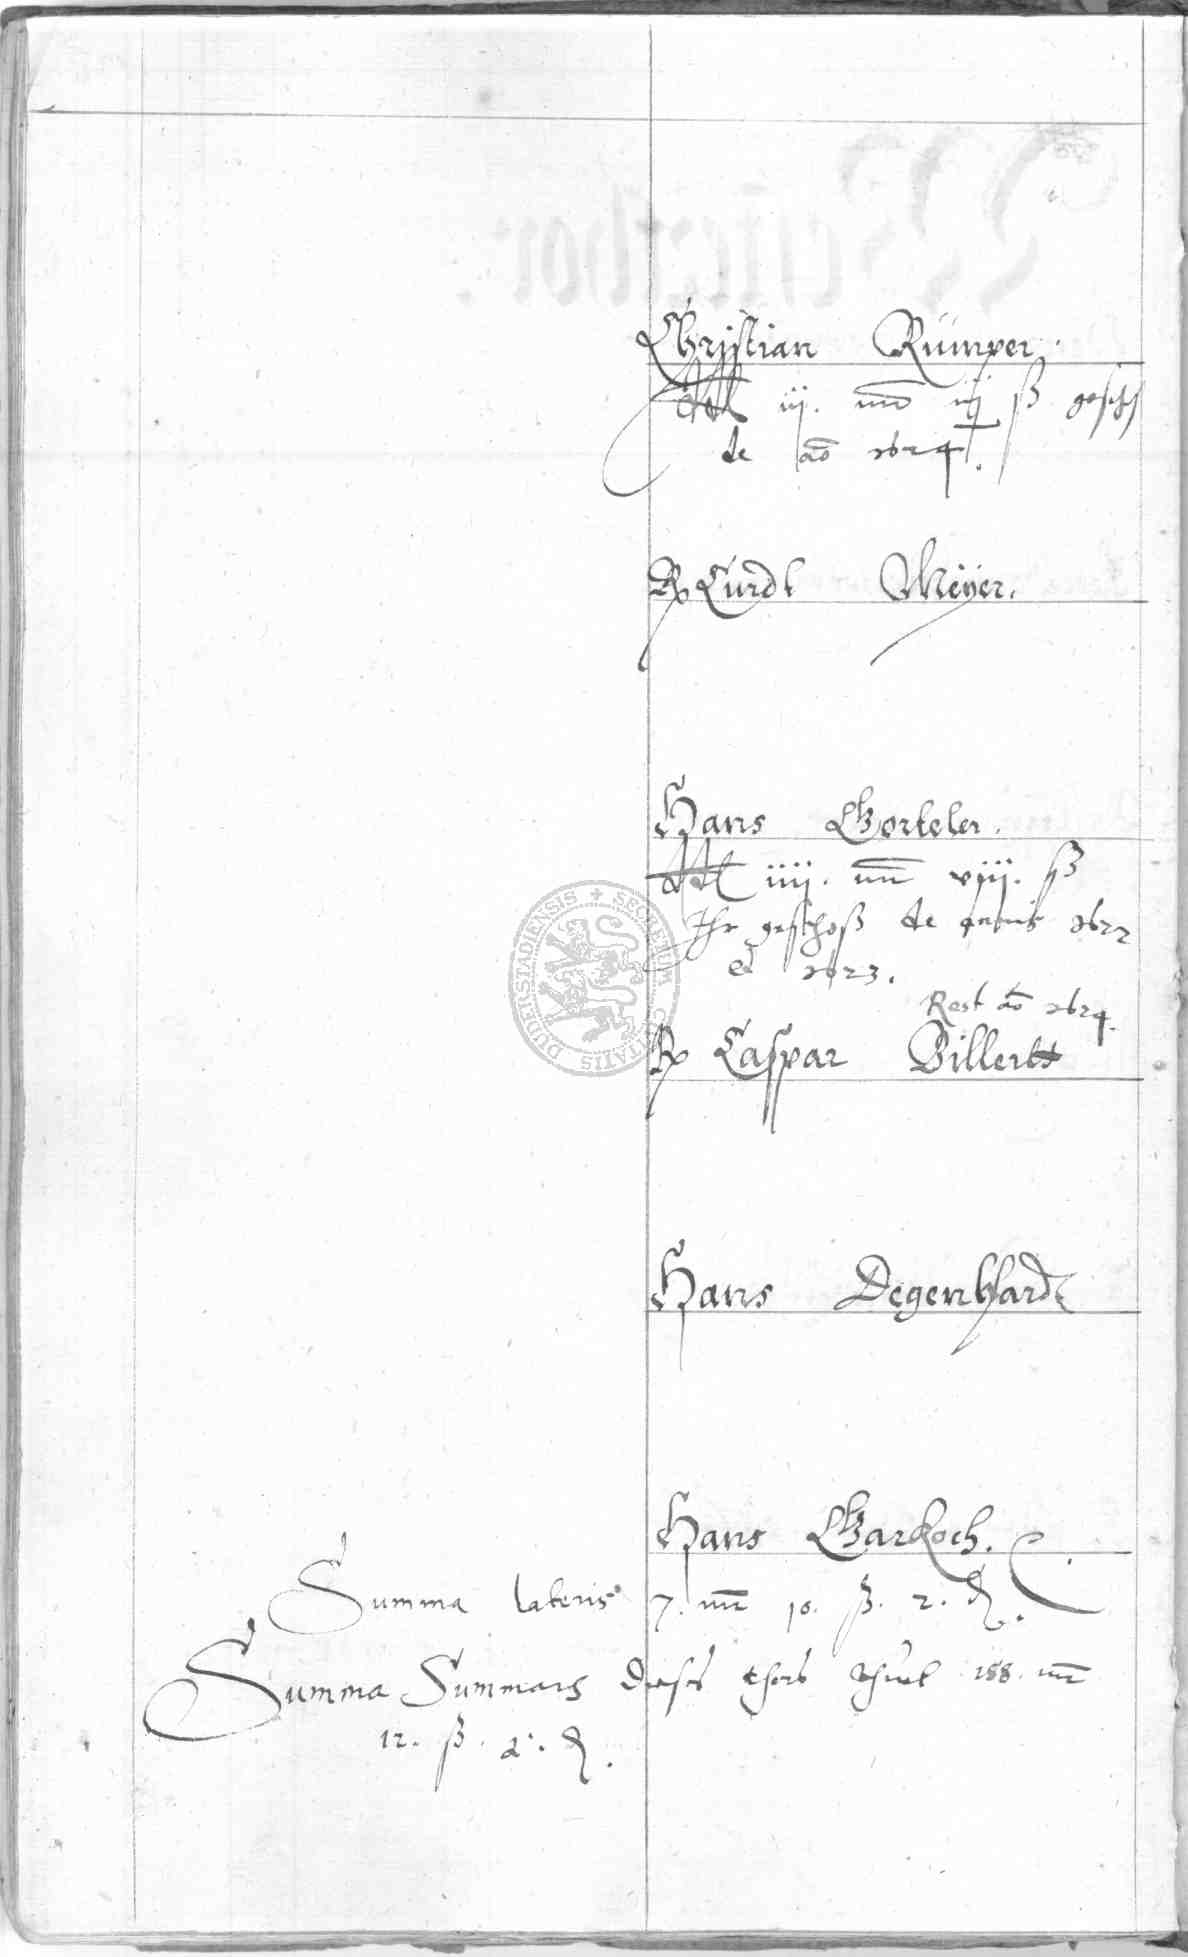 Christian Rümper.
iij. mr iij ß gesch
de ao 1624.
Curdt Meÿer.
Hans Gorteler.
iiij. mr viij. ß
Ihr geschoß de annis 1622
et 1623.
Rest ao 1624.
Caspar Dillertt
Hans Degenhardt
Hans Garkoch.
Summa lateris 7. mr 10. ß. 2. d.
Summa Summarum dieses thors thuet 158. mr
12. ß. d.
SECRETUM CIVITATIS DUDERSTADIENSIS